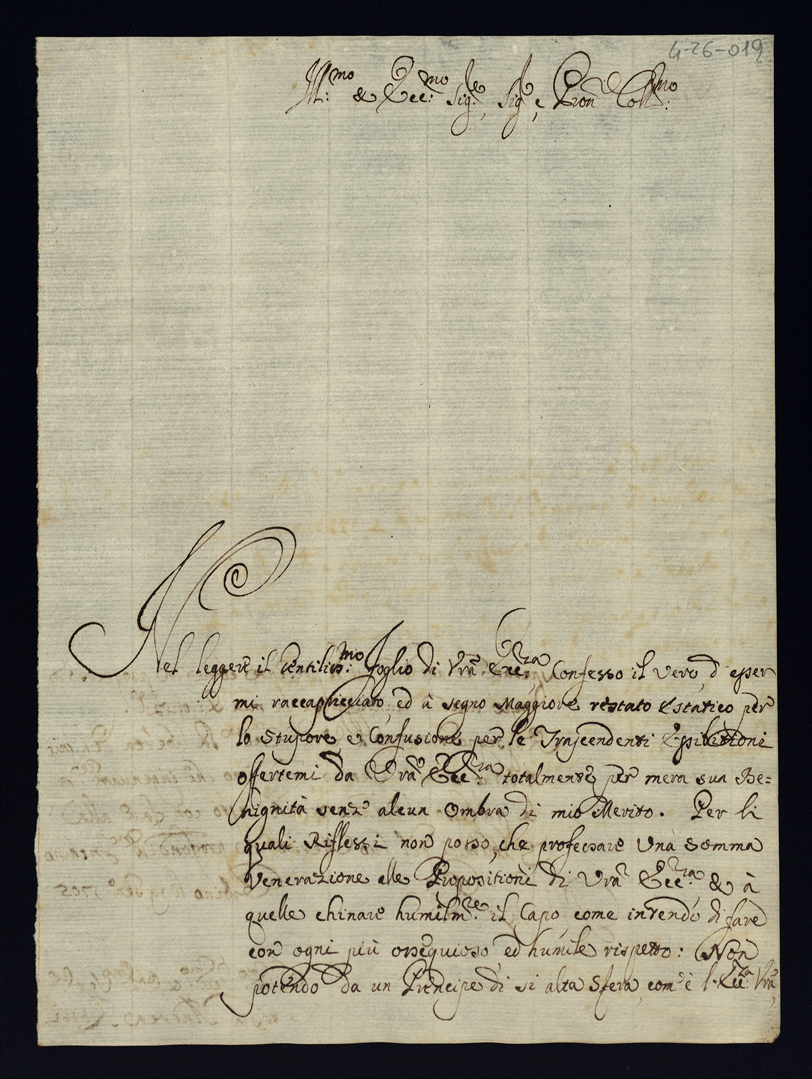 4-26-019
Ill:mo & Ecc:mo Sig:re, Sig:re, e Pron Coll:mo
Nel leggere il Gentiliss:mo Foglio di Vra Ecc:za Confesso il vero, d'esser
mi raccapricciato, ed à segno Maggiore restato Estatico per
lo Stupore, e Confusione per le Trascendenti Esibittioni
offertemi da Vra Ecc:za totalmente per mera sua Be=
nignità senz' alcun ombra di mio Merito. Per li
quali Riflessi non posso, che professare Una somma
Venerazione alle Propositioni di Vra Ecc:za & à
quelle chinare humilm:te il Capo, come intendo di fare
con ogni più ossequioso ed humile rispetto: Non
potendo da un Principe di si alta Sfera, com' è l'Ecc:za Vra,